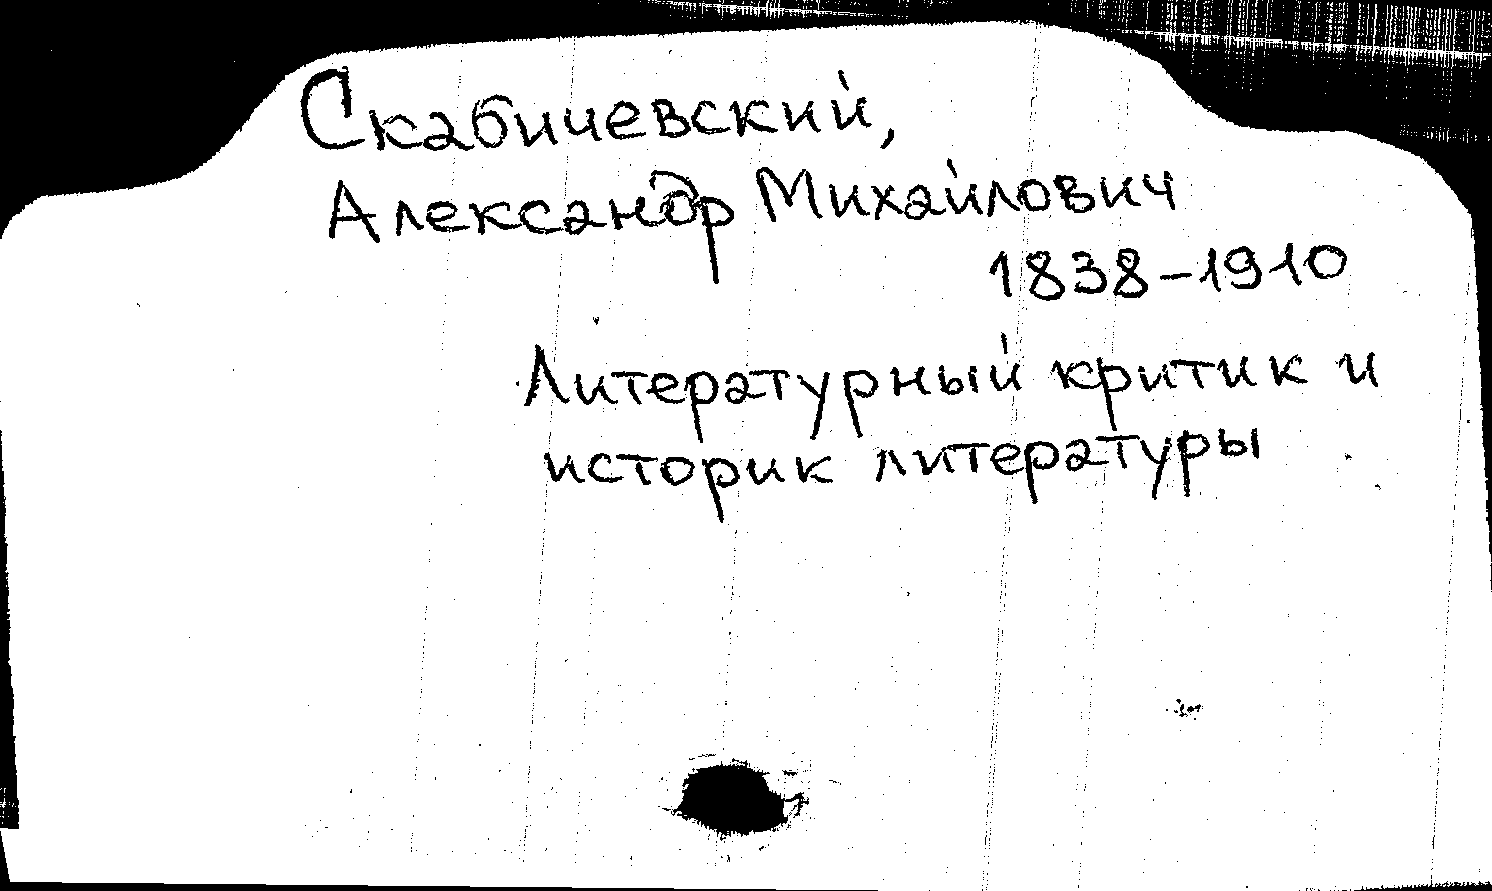 Скабичевский,
Александр Михайлович
1838-1910
Литературный критик и
историк литературы